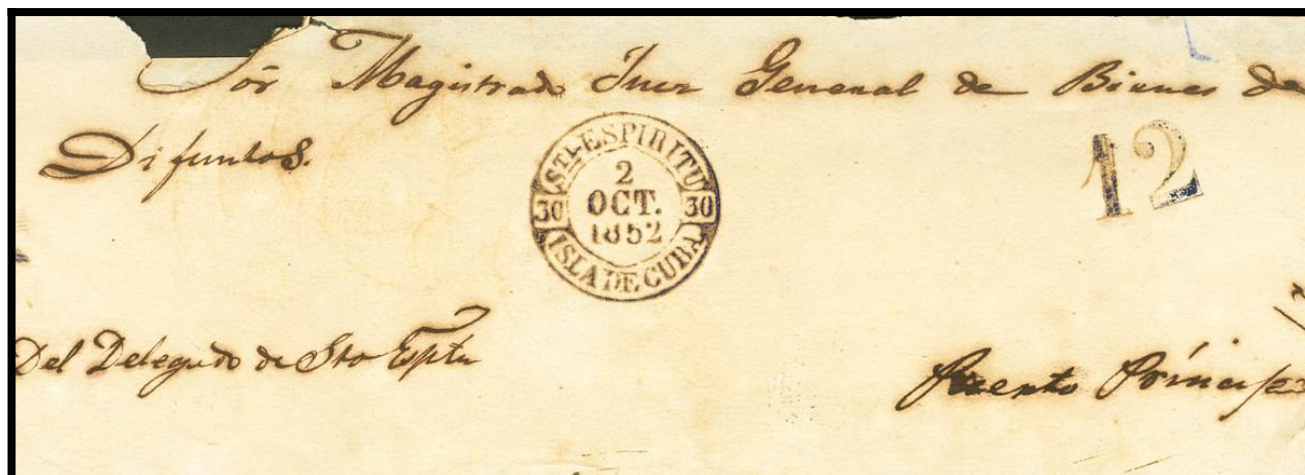 Sor Magistrado Juez General de Bienes de
Difuntos.
STI-ESPIRITU
2
OCT.
1852
30 30
ISLA DE CUBA
12
Del Delegado de Sto Esptu
Puerto Príncipe